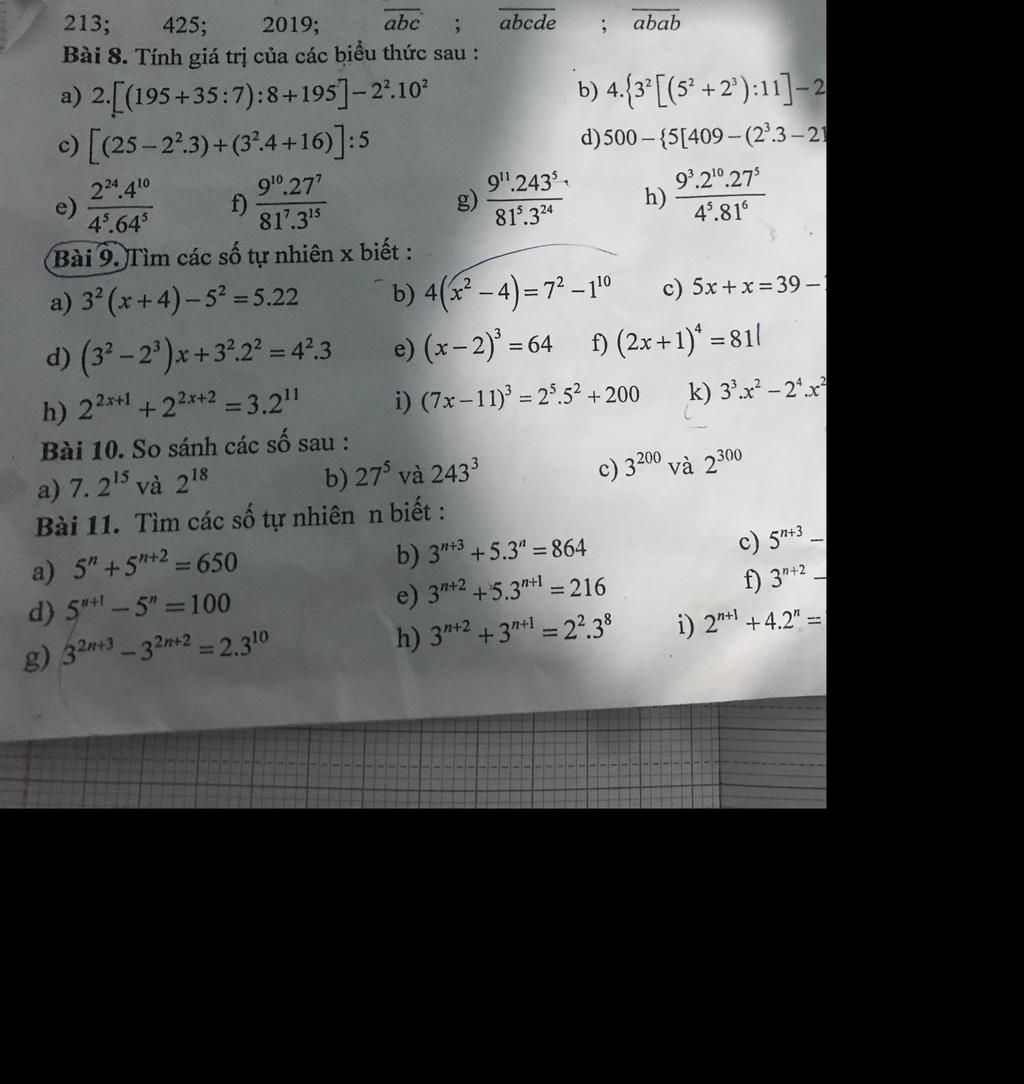 213; 425; 2019; \overline{abc} ; \overline{abcde} ; \overline{abab}
Bài 8. Tính giá trị của các biểu thức sau :
a) 2.[(195+35:7):8+195]−2².10² b) 4.{3²[(5²+2³):11]−2
c) [(25−2².3)+(3².4+16)]:5 d)500−{5[409−(2³.3−21
e) \frac{2²⁴.4¹⁰}{4⁵.64⁵} f) \frac{9¹⁰.27⁷}{81⁷.3¹⁵} g) \frac{9¹¹.243⁵}{81⁵.3²⁴} h) \frac{9³.2¹⁰.27⁵}{4⁵.81⁶}
Bài 9. Tìm các số tự nhiên x biết :
a) 3²(x+4)−5²=5.22 b) 4(x²−4)=7²−1¹⁰ c) 5x+x=39−
d) (3²−2³)x+3².2²=4².3 e) (x−2)³=64 f) (2x+1)⁴=81
h) 2^{2x+1}+2^{2x+2}=3.2¹¹ i) (7x−11)³=2⁵.5²+200 k) 3³.x²−2⁴.x²
Bài 10. So sánh các số sau :
a) 7. 2¹⁵ và 2¹⁸ b) 27⁵ và 243³ c) 3²⁰⁰ và 2³⁰⁰
Bài 11. Tìm các số tự nhiên n biết :
a) 5ⁿ+5ⁿ⁺²=650 b) 3ⁿ⁺³+5.3ⁿ=864 c) 5ⁿ⁺³−
d) 5ⁿ⁺¹−5ⁿ=100 e) 3ⁿ⁺²+5.3ⁿ⁺¹=216 f) 3ⁿ⁺²−
g) 3²ⁿ⁺³−3²ⁿ⁺²=2.3¹⁰ h) 3ⁿ⁺²+3ⁿ⁺¹=2².3⁸ i) 2ⁿ⁺¹+4.2ⁿ=